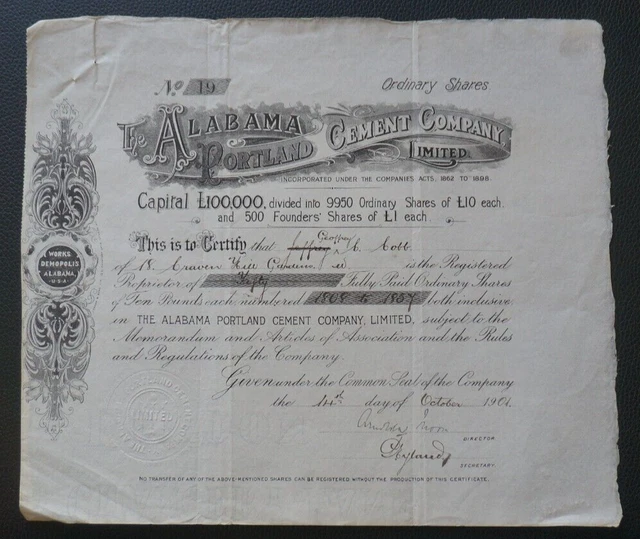 No. 19
Ordinary Shares
The ALABAMA
PORTLAND
CEMENT COMPANY,
LIMITED.
INCORPORATED UNDER THE COMPANIES ACTS, 1862 TO 1898.
Capital £100,000, divided into 9950 Ordinary Shares of £10 each.
and 500 Founders' Shares of £1 each.
This is to Certify that Jeffrey Geoffrey C. Cobb
of 18. Craven Hill Gardens W is the Registered
Proprietor of Fifty Fully Paid Ordinary Shares
of Ten Pounds each numbered 1808 to 1857 both inclusive
in THE ALABAMA PORTLAND CEMENT COMPANY, LIMITED, subject to the
Memorandum and Articles of Association and the Rules
and Regulations of the Company.
Given under the Common Seal of the Company
the 14th day of October 1901.
DIRECTOR
SECRETARY.
NO TRANSFER OF ANY OF THE ABOVE-MENTIONED SHARES CAN BE REGISTERED WITHOUT THE PRODUCTION OF THIS CERTIFICATE.
WORKS
DEMOPOLIS
ALABAMA,
U·S·A
LIMITED